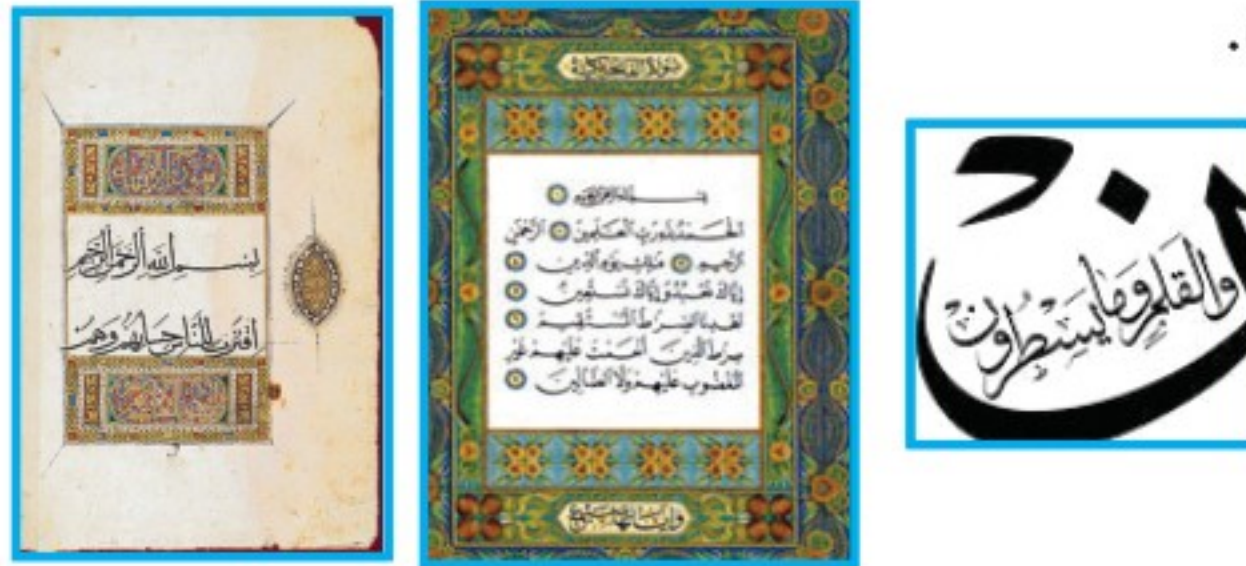 بِسْمِ اللَّهِ الرَّحْمَنِ الرَّحِيمِ
اقترب للناس حسابهم وهم
سورة الفاتحة
بسم الله الرحمن الرحيم ۝
الحمد لله رب العلمين ۝ الرحمن
الرحيم ۝ ملك يوم الدين ۝
إياك نعبد وإياك نستعين ۝
اهدنا الصرط المستقيم ۝
صرط الذين أنعمت عليهم غير
المغضوب عليهم ولا الضالين ۝
وآياتها سبع
ن
والقلم وما يسطرون